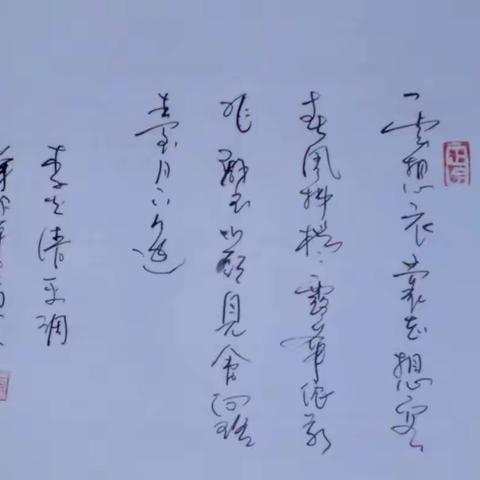 雲想衣裳花想容
春風拂檻露華濃若
非群玉山頭見會向瑶
臺月下逢
李白清平调